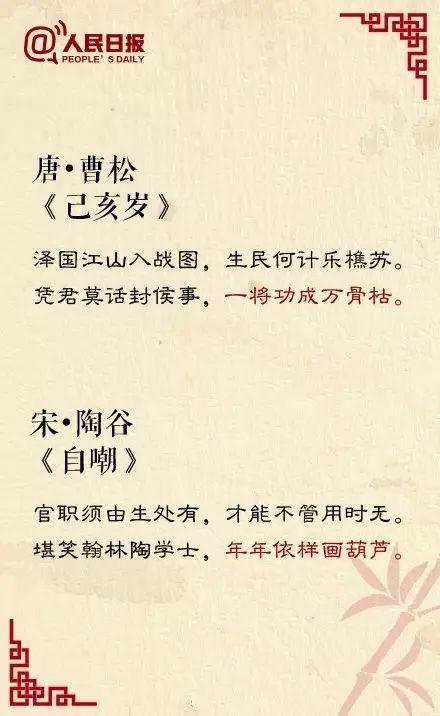 @人民日报
PEOPLE'S DAILY
唐•曹松
《己亥岁》
泽国江山入战图，生民何计乐樵苏。
凭君莫话封侯事，一将功成万骨枯。
宋•陶谷
《自嘲》
官职须由生处有，才能不管用时无。
堪笑翰林陶学士，年年依样画葫芦。